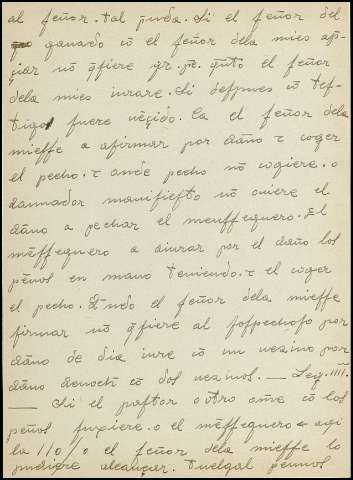 al señor. tal pnda. Si el señor del
ganado cõ el señor dela mies apr̃-
çiar nõ q̃siere gr. po. q̃nto el señor
dela mies iurare. Si despues cõ tes-
tigos fuere uẽçido. Ca el señor dela
miesse a afirmar por daño τ coger
el pecho. τ ante pecho nõ cogiere. o
dannador manifiesto nõ ouiere el
daño a pechar el messeguero. El
messeguero a aiurar por el daño los
peños en mano teniendo. τ el coger
el pecho. Qndo el señor dela miesse
firmar nõ q̃siere al sospechoso por
daño de dia iure cõ un uezino por
daño denoch cõ dos uezinos. — Ley. IIII.
— Si el pastor o otro ome cõ los
peños fuxiere. o el messeguero aqui
la 110/ o el señor dela miesse lo
pudiere alcançar. tuelgal pennos